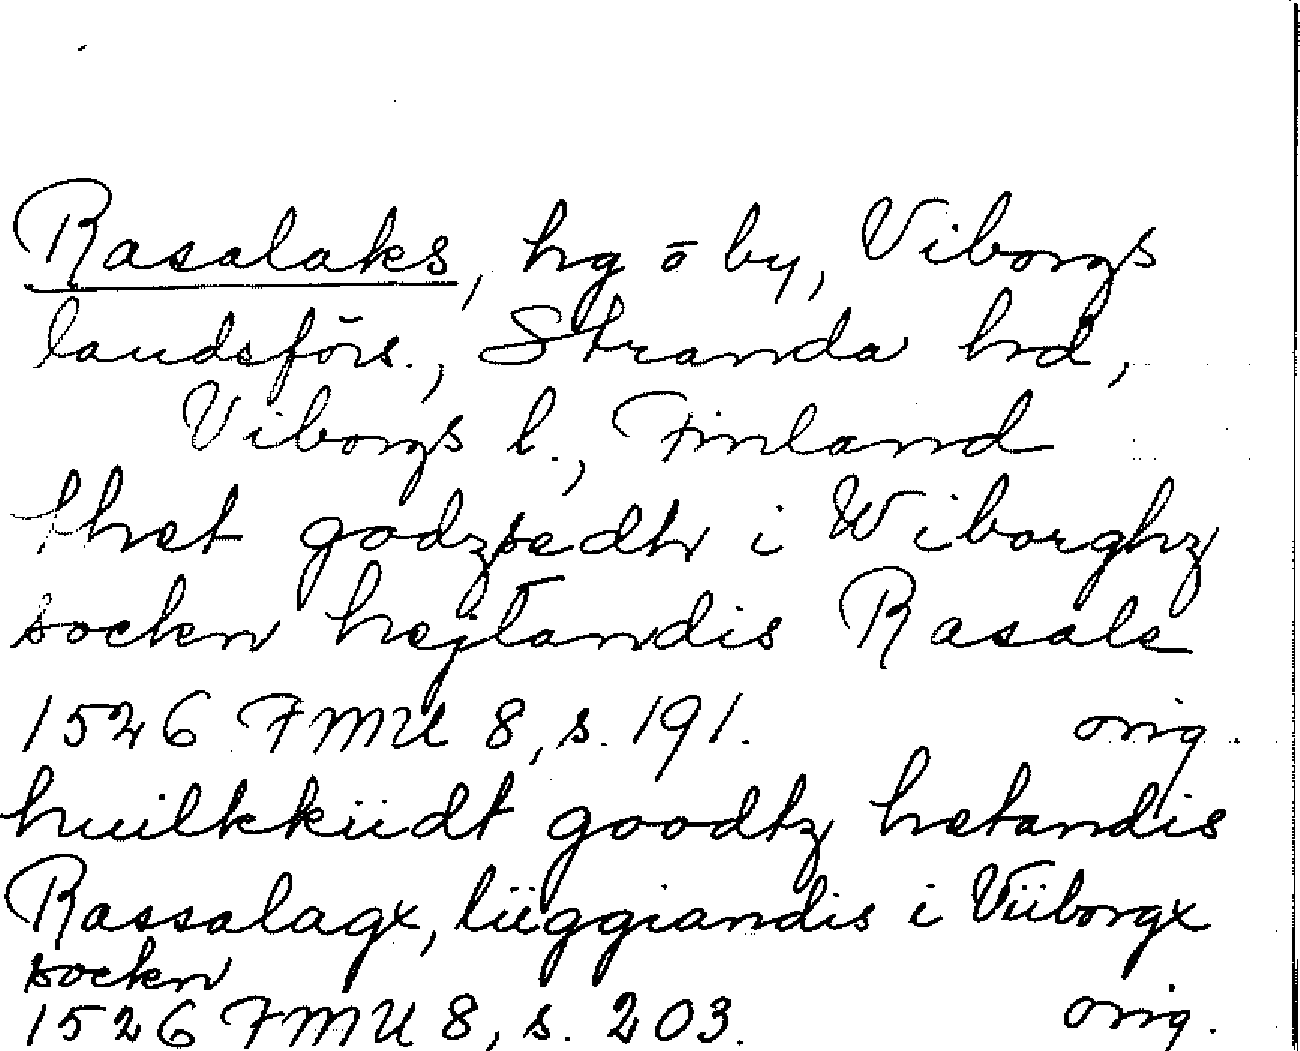 Rasalaks, hg o by, Viborgs
landsförs., Stranda hd,
Viborgs l., Finland
thet godzsedhr i Wiborghz
sockn hejtandis Rasale
1526 FMU 8, s. 191. orig.
huilkkiidt goodtz hetandis
Rassalagx, liiggiandis i Viiborgx
sockn
1526 FMU 8, s. 203. orig.